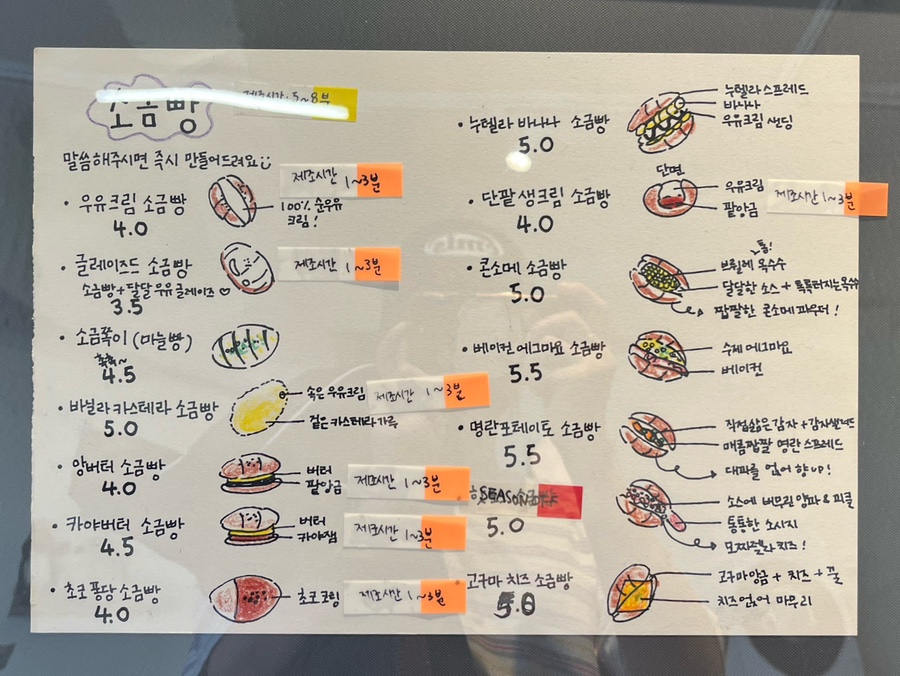 소금빵
제조시간: 5~8분
말씀해주시면 즉시 만들어드려요
• 우유크림 소금빵
4.0
제조시간 1~3분
100% 순우유
크림!
• 글레이즈드 소금빵
소금빵+달달우유글레이즈♡
3.5
제조시간 1~3분
• 소금쪽이 (마늘빵)
촉촉~
4.5
• 바닐라 카스테라 소금빵
5.0
속은 우유크림
겉은 카스테라가루
제조시간 1~3분
• 앙버터 소금빵
4.0
버터
팥앙금
제조시간 1~3분
• 카야버터 소금빵
4.5
버터
카야잼
제조시간 1~3분
• 초코 퐁당 소금빵
4.0
초코코팅
제조시간 1~3분
• 누텔라 바나나 소금빵
5.0
누텔라 스프레드
바나나
우유크림 샌딩
• 단팥 생크림 소금빵
4.0
단면
우유크림
팥앙금
제조시간 1~3분
• 콘소메 소금빵
5.0
톡!
브륄레 옥수수
달달한 소스 + 톡톡터지는옥수수
짭짤한 콘소메 파우더!
• 베이컨 에그마요 소금빵
5.5
수제 에그마요
베이컨
• 명란포테이토 소금빵
5.5
직접삶은감자 +
매콤짭짤 명란 스프레드
대파를 얹어 향 UP!
SEASON OFF
5.0
소스에 버무린 양파 & 피클
통통한 소시지
모짜렐라 치즈!
고구마 치즈 소금빵
5.0
고구마앙금 + 치즈 + 꿀
치즈얹어 마무리